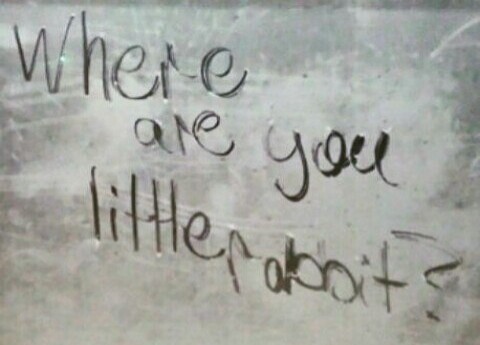 Where
are you
little rabbit?